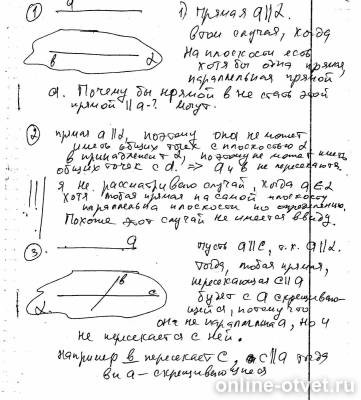 ① a
1) Прямая a∥α.
В том случае, когда
на плоскости есть
хотя бы одна прямая,
в α
параллельная прямой
a. Почему бы прямой в не стать этой
прямой ∥ a-? Могут.
② прямая a∥α, поэтому она не может
иметь общих точек с плоскостью α
в принадлежит α, поэтому не может иметь
общих точек с a. => a и в не пересекаются.
Я не рассматриваю случай, когда a∈α
Хотя любая прямая на самой плоскости
параллельна плоскости по определению.
Похоже этот случай не имеется ввиду.
③ a
Пусть a∥c, т.к. a∥α.
Тогда, любая прямая,
пересекающая c∥a
в c
будет с a скрещиваю-
α
щейся, потому что
она не параллельна a, но и
не пересекается с ней.
Например в пересекает c, c∥a тогда
в и a - скрещивающиеся
online-otvet.ru